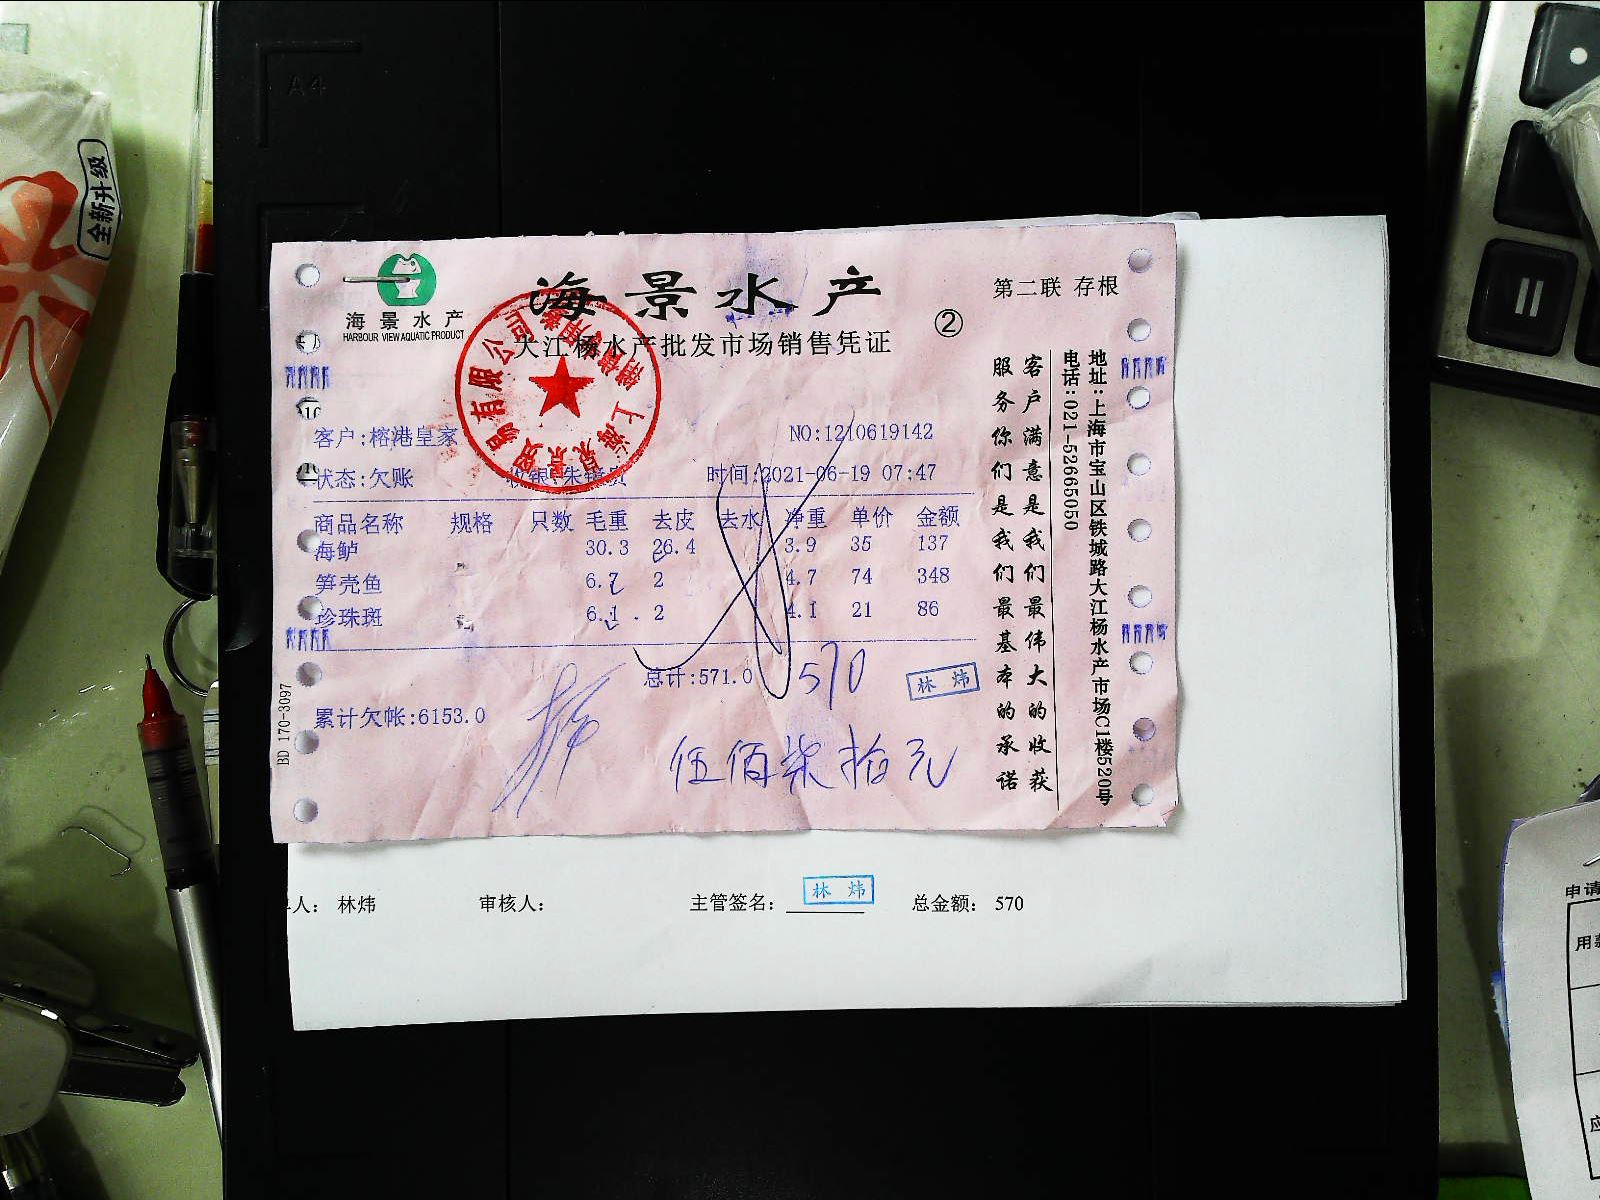 A4
全新升级
海景水产
HARBOUR VIEW AQUATIC PRODUCT
海景水产
大江杨水产批发市场销售凭证
②
第二联 存根
客户:榕港皇家
NO:1210619142
状态:欠账
时间:2021-06-19 07:47
商品名称 规格 只数 毛重 去皮 去水 净重 单价 金额
海鲈 30.3 26.4 3.9 35 137
笋壳鱼 6.7 2 4.7 74 348
珍珠斑 6.1 2 4.1 21 86
总计:571.0
570
林炜
累计欠帐:6153.0
伍佰柒拾元
BD 170-3097
客户满意是我们最伟大的收获
服务你们是我们最基本的承诺
地址:上海市宝山区铁城路大江杨水产市场C1楼520号
电话:021-52665050
人: 林炜
审核人:
主管签名:
林炜
总金额: 570
申请
用款
应